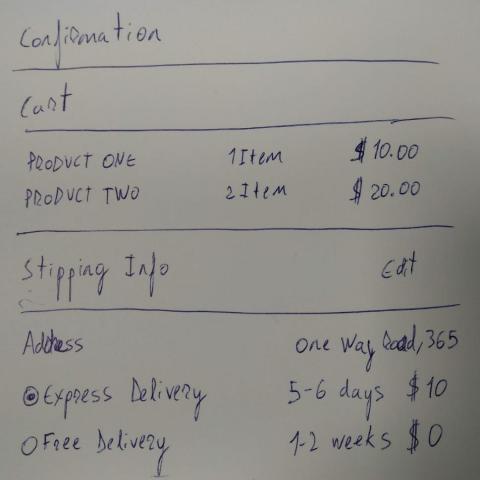 Confirmation
Cart
PRODUCT ONE 1 Item $10.00
PRODUCT TWO 2 Item $20.00
Stipping Info Edit
Address One Way Road, 365
Express Delivery 5-6 days $10
Free Delivery 1-2 weeks $0